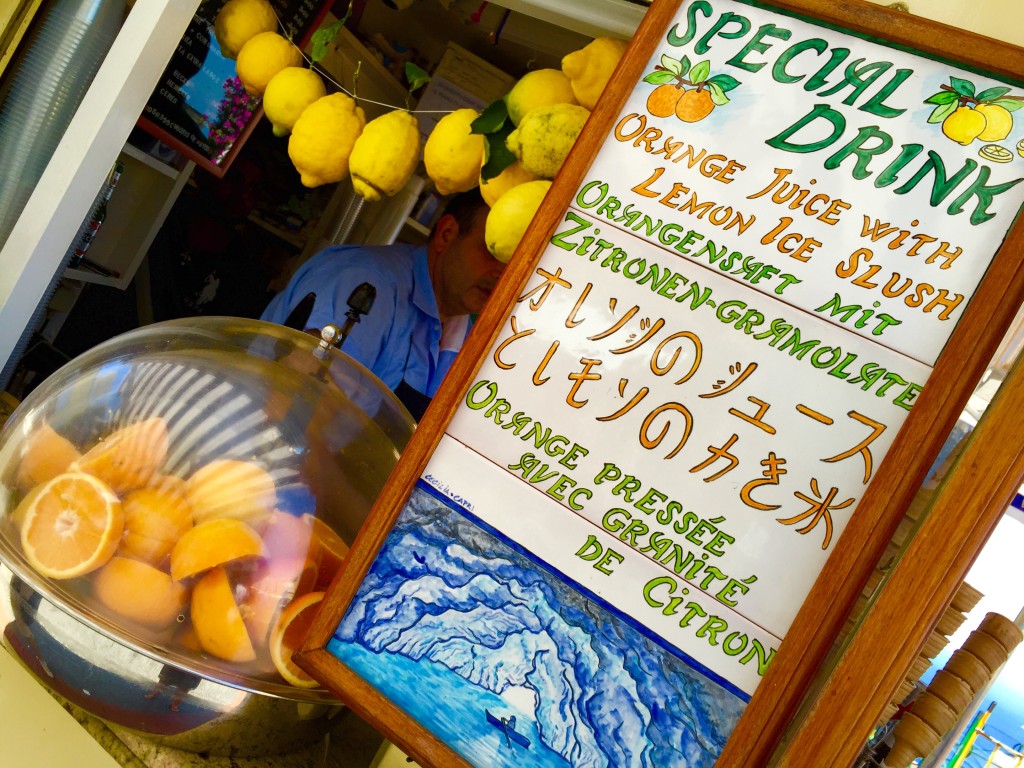 SPECIAL
DRINK
ORANGE JUICE WITH
LEMON ICE SLUSH
ORANGENSAFT MIT
ZITRONEN-GRAMOLATE
オレソヅのジュース
とレモソのカき氷
ORANGE PRESSÉE
AVEC GRANITÉ
DE CITRON